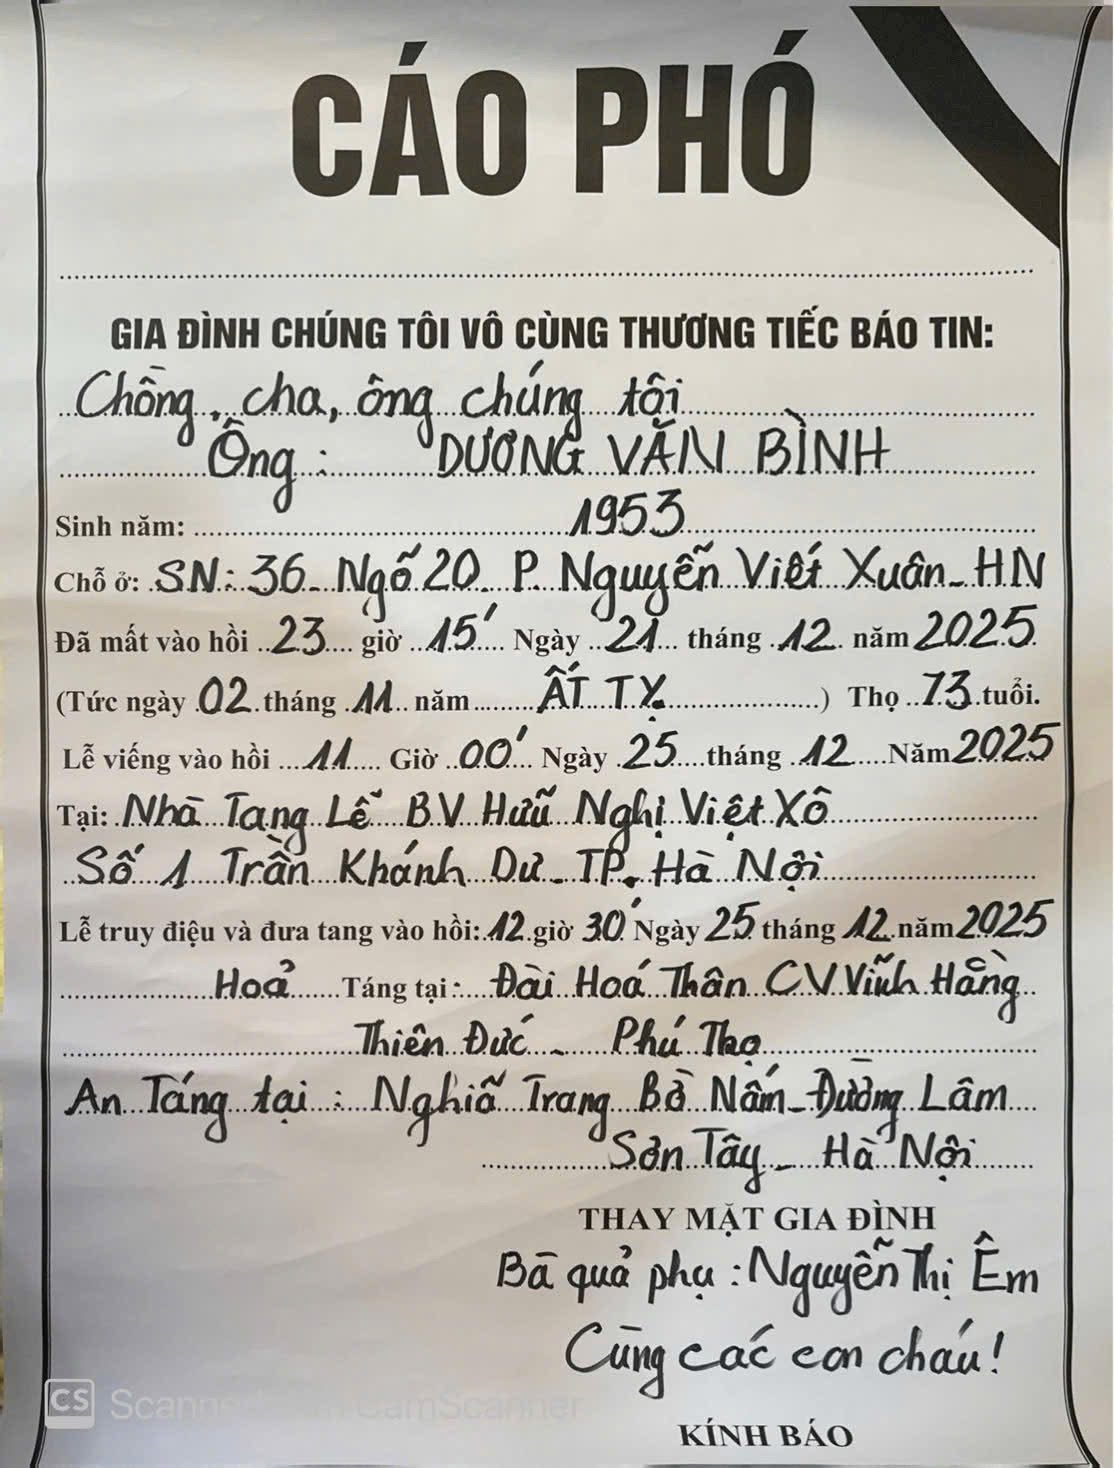 CÁO PHÓ
GIA ĐÌNH CHÚNG TÔI VÔ CÙNG THƯƠNG TIẾC BÁO TIN:
Chồng, cha, ông chúng tôi
Ông : DƯƠNG VĂN BÌNH
Sinh năm: 1953
Chỗ ở: SN: 36 - Ngõ 20 - P. Nguyễn Viết Xuân - HN
Đã mất vào hồi 23 giờ 15' Ngày 21 tháng 12 năm 2025
(Tức ngày 02 tháng 11 năm ẤT TỴ) Thọ 73 tuổi.
Lễ viếng vào hồi 11 Giờ 00' Ngày 25 tháng 12 Năm 2025
Tại: Nhà Tang Lễ BV Hữu Nghị Việt Xô
Số 1 Trần Khánh Dư - TP. Hà Nội
Lễ truy điệu và đưa tang vào hồi: 12 giờ 30' Ngày 25 tháng 12 năm 2025
Hoả Táng tại : Đài Hoá Thân CV Vĩnh Hằng
Thiên Đức - Phú Thọ
An Táng tại : Nghĩa Trang Bồ Nấm - Đường Lâm
Sơn Tây - Hà Nội
THAY MẶT GIA ĐÌNH
Bà quả phụ : Nguyễn Thị Êm
Cùng các con cháu!
CS Scanned with CamScanner
KÍNH BÁO